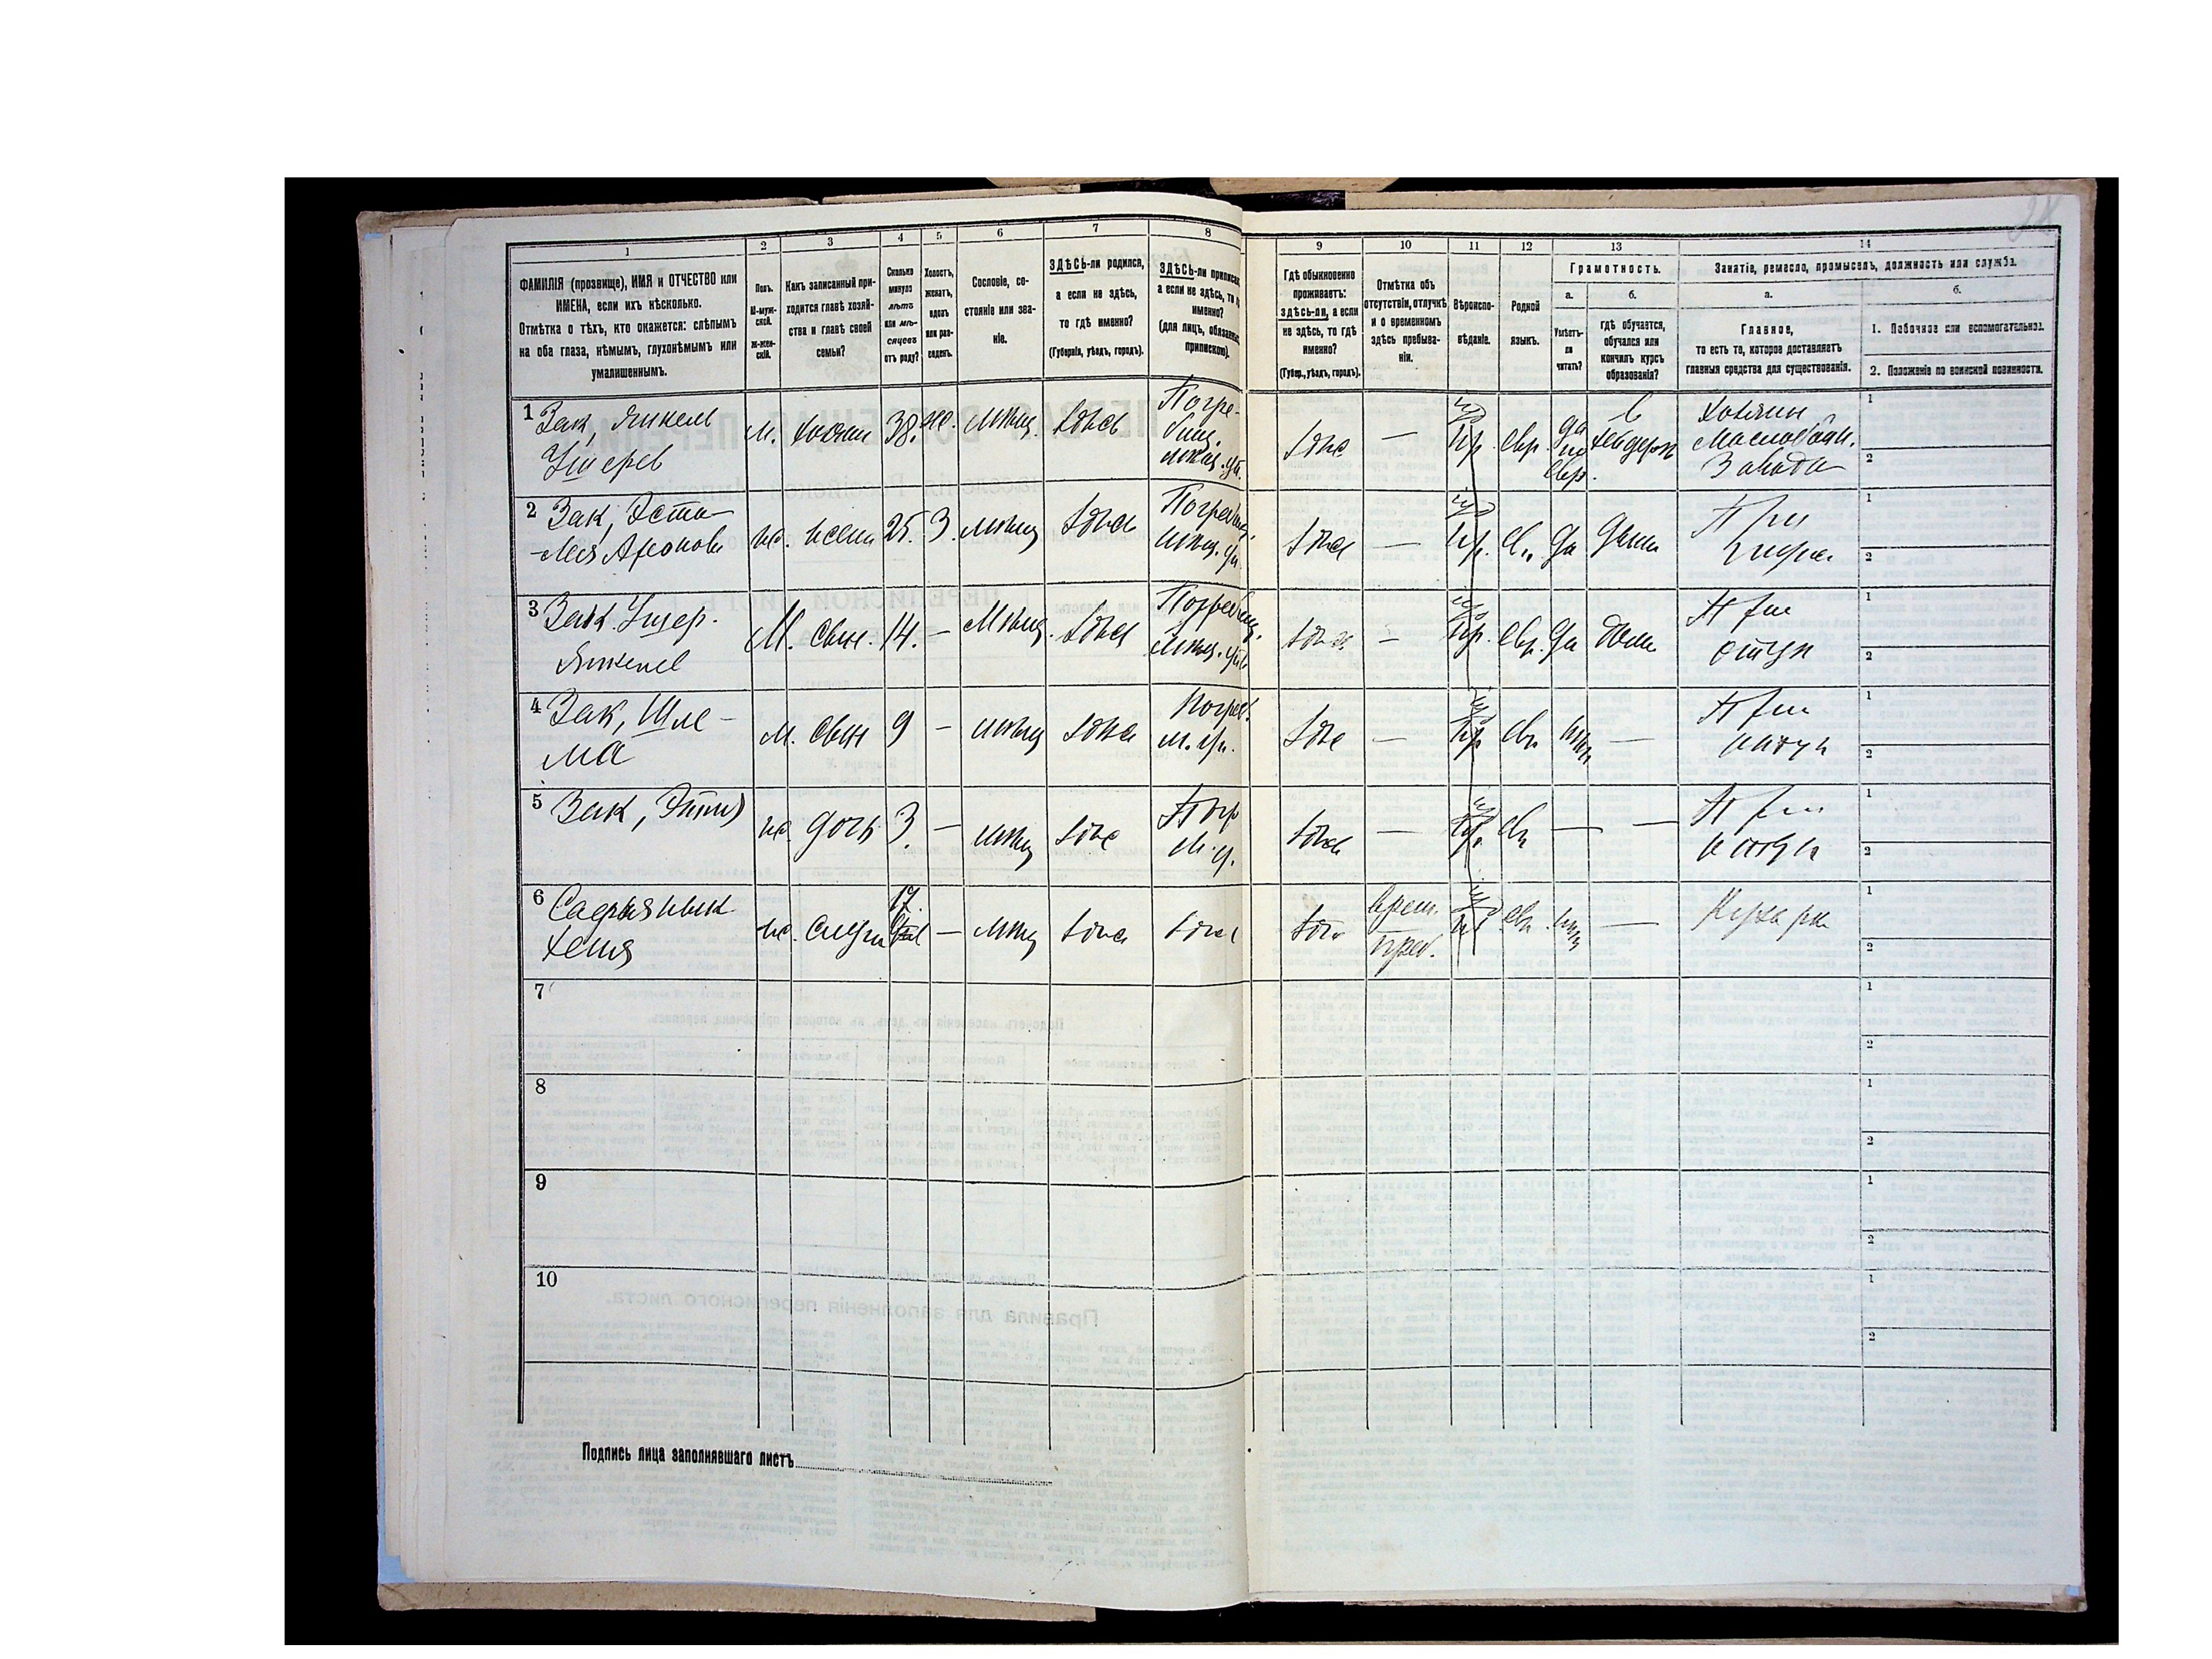 1
2
3
4
5
6
7
8
9
10
11
12
13
14
ФАМИЛІЯ (прозвище), ИМЯ и ОТЧЕСТВО или
ИМЕНА, если ихъ нѣсколько.
Отмѣтка о тѣхъ, кто окажется: слѣпымъ
на оба глаза, нѣмымъ, глухонѣмымъ или
умалишеннымъ.
Полъ.
М-муж-
ской.
ж-жен-
скій.
Какъ записанный при-
ходится главѣ хозяй-
ства и главѣ своей
семьи?
Сколько
минуло
лѣтъ
или мѣ-
сяцевъ
отъ роду?
Холостъ,
женатъ,
вдовъ
или раз-
веденъ.
Сословіе, со-
стояніе или зва-
ніе.
ЗДѢСЬ-ли родился,
а если не здѣсь,
то гдѣ именно?
(Губернія, уѣздъ, городъ).
ЗДѢСЬ-ли приписан
а если не здѣсь, то
именно?
(для лицъ, обязан
припискою).
Гдѣ обыкновенно
проживаетъ:
здѣсь-ли, а если
не здѣсь, то гдѣ
именно?
(Губер., уѣздъ, городъ).
Отмѣтка объ
отсутствіи, отлучкѣ
и о временномъ
здѣсь пребыва-
ніи.
Вѣроиспо-
вѣданіе.
Родной
языкъ.
Грамотность.
а.
Умѣетъ-
ли
читать?
б.
гдѣ обучается,
обучался или
кончилъ курсъ
образованія?
Занятіе, ремесло, промыселъ, должность или служба.
а.
Главное,
то есть то, которое доставляетъ
главныя средства для существованія.
б.
1. Побочное или вспомогательное.
2. Положеніе по воинской повинности.
1 Зак, Янкель
Ушерев
м. хозяин 38. же. мѣщ. здѣсь
Погре-
бищ.
мѣщ. уп.
здѣс — евр. да
по
евр.
в
хейдере
Хозяин
Маслобойн.
Завода
1
2
2 Зак, Эсте-
Лея Аронов
же. жена 25. З. мѣщ здѣсь
Погребищ.
мѣщ. уп.
здѣс — ев. да дома
При
муже
1
2
3 Зак. Ушер.
Янкелев
М. сын. 14. — Мѣщ. здѣсь
Погребищ.
мѣщ. уп.
здѣсь — евр. да дома
При
отцѣ
1
2
4 Зак, Шле-
ма
м. сын 9 — мѣщ здѣсь
Погреб.
м. уп.
здѣс — ев. —
При
отцѣ
1
2
5 Зак, Этля
же. дочь 3. — мѣщ здѣс
Погр
м. у.
здѣсь — ев — —
При
отцѣ
1
2
6
Хеня
же. служ 17. — мѣщ здѣсь здѣс здѣс
врем.
преб.
ев. —
Кухарка
1
2
7
1
2
8
1
2
9
1
2
10
1
2
Подпись лица заполнявшаго листъ